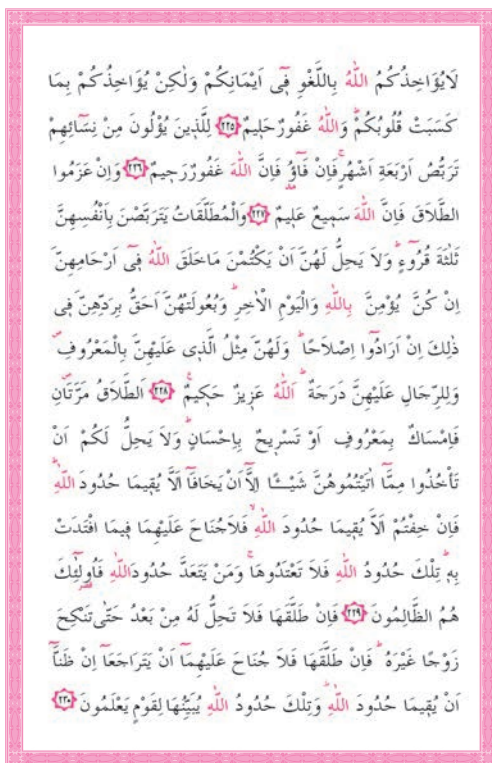 لَايُؤَاخِذُكُمُ اللّٰهُ بِاللَّغْوِ فٖٓى اَيْمَانِكُمْ وَلٰكِنْ يُؤَاخِذُكُمْ بِمَا
كَسَبَتْ قُلُوبُكُمْؕ وَاللّٰهُ غَفُورٌ حَلٖيمٌ ﴿٢٢٥﴾ لِلَّذٖينَ يُؤْلُونَ مِنْ نِسَٓائِهِمْ
تَرَبُّصُ اَرْبَعَةِ اَشْهُرٍۚ فَاِنْ فَٓاؤُ فَاِنَّ اللّٰهَ غَفُورٌ رَحٖيمٌ ﴿٢٢٦﴾ وَاِنْ عَزَمُوا
الطَّلَاقَ فَاِنَّ اللّٰهَ سَمٖيعٌ عَلٖيمٌ ﴿٢٢٧﴾ وَالْمُطَلَّقَاتُ يَتَرَبَّصْنَ بِاَنْفُسِهِنَّ
ثَلٰثَةَ قُرُٓوءٍؕ وَلَا يَحِلُّ لَهُنَّ اَنْ يَكْتُمْنَ مَاخَلَقَ اللّٰهُ فٖٓى اَرْحَامِهِنَّ
اِنْ كُنَّ يُؤْمِنَّ بِاللّٰهِ وَالْيَوْمِ الْاٰخِرِؕ وَبُعُولَتُهُنَّ اَحَقُّ بِرَدِّهِنَّ فٖى
ذٰلِكَ اِنْ اَرَادُٓوا اِصْلَاحًاؕ وَلَهُنَّ مِثْلُ الَّذٖى عَلَيْهِنَّ بِالْمَعْرُوفِࣕ
وَلِلرِّجَالِ عَلَيْهِنَّ دَرَجَةٌؕ اَللّٰهُ عَزٖيزٌ حَكٖيمٌ ﴿٢٢٨﴾ اَلطَّلَاقُ مَرَّتَانِࣕ
فَاِمْسَاكٌ بِمَعْرُوفٍ اَوْ تَسْرٖيحٌ بِاِحْسَانٍؕ وَلَا يَحِلُّ لَكُمْ اَنْ
تَأْخُذُوا مِمَّٓا اٰتَيْتُمُوهُنَّ شَيْـًٔا اِلَّٓا اَنْ يَخَافَٓا اَلَّا يُقٖيمَا حُدُودَ اللّٰهِؕ
فَاِنْ خِفْتُمْ اَلَّا يُقٖيمَا حُدُودَ اللّٰهِۙ فَلَاجُنَاحَ عَلَيْهِمَا فٖيمَا افْتَدَتْ
بِهٖؕ تِلْكَ حُدُودُ اللّٰهِ فَلَا تَعْتَدُوهَاۚ وَمَنْ يَتَعَدَّ حُدُودَاللّٰهِ فَاُو۬لٰٓئِكَ
هُمُ الظَّالِمُونَ ﴿٢٢٩﴾ فَاِنْ طَلَّقَهَا فَلَا تَحِلُّ لَهُ مِنْ بَعْدُ حَتّٰى تَنْكِحَ
زَوْجًا غَيْرَهُؕ فَاِنْ طَلَّقَهَا فَلَا جُنَاحَ عَلَيْهِمَٓا اَنْ يَتَرَاجَعَٓا اِنْ ظَنَّٓا
اَنْ يُقٖيمَا حُدُودَ اللّٰهِؕ وَتِلْكَ حُدُودُ اللّٰهِ يُبَيِّنُهَا لِقَوْمٍ يَعْلَمُونَ ﴿٢٣٠﴾